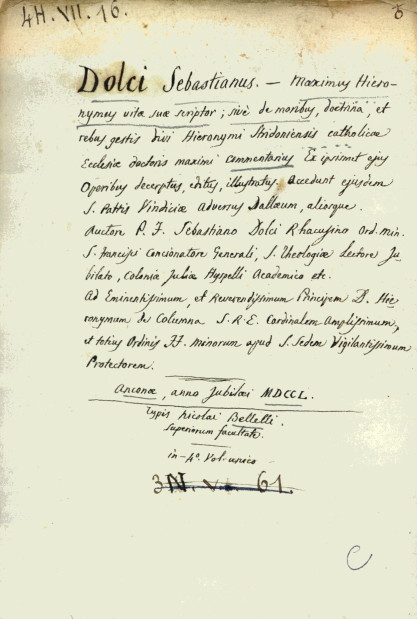 4H. VII. 16.
Dolci Sebastianus. — Maximus Hiero-
nymus vitæ suæ scriptor; sivè de moribus, doctrina, et
rebus gestis divi Hieronymi Stridoniensis catholicæ
Ecclesiæ doctoris maximi commentarius Ex ipsimet ejus
Operibus decerptus, editus, illustratus. Accedunt ejusdem
S. Patris Vindiciæ Adversus Dallæum, aliosque.
Auctore P. F. Sebastiano Dolci Rhacusino Ord. min.
S. Francisci Concionatore Generali, S. Theologiæ Lectore Ju-
bilato, Coloniæ Juliæ Hyspelli Academico etc.
Ad Eminentissimum, et Reverendissimum Principem D. Hie-
ronymum de Columna S. R. E. Cardinalem Amplissimum,
et totius Ordinis FF. minorum apud S. Sedem Vigilantissimum
Protectorem.
Anconæ, anno Jubilæi MDCCL.
Typis Nicolai Bellelli.
Superiorum facultate.
in-4º. Vol. unico
3N. V. 61.
C